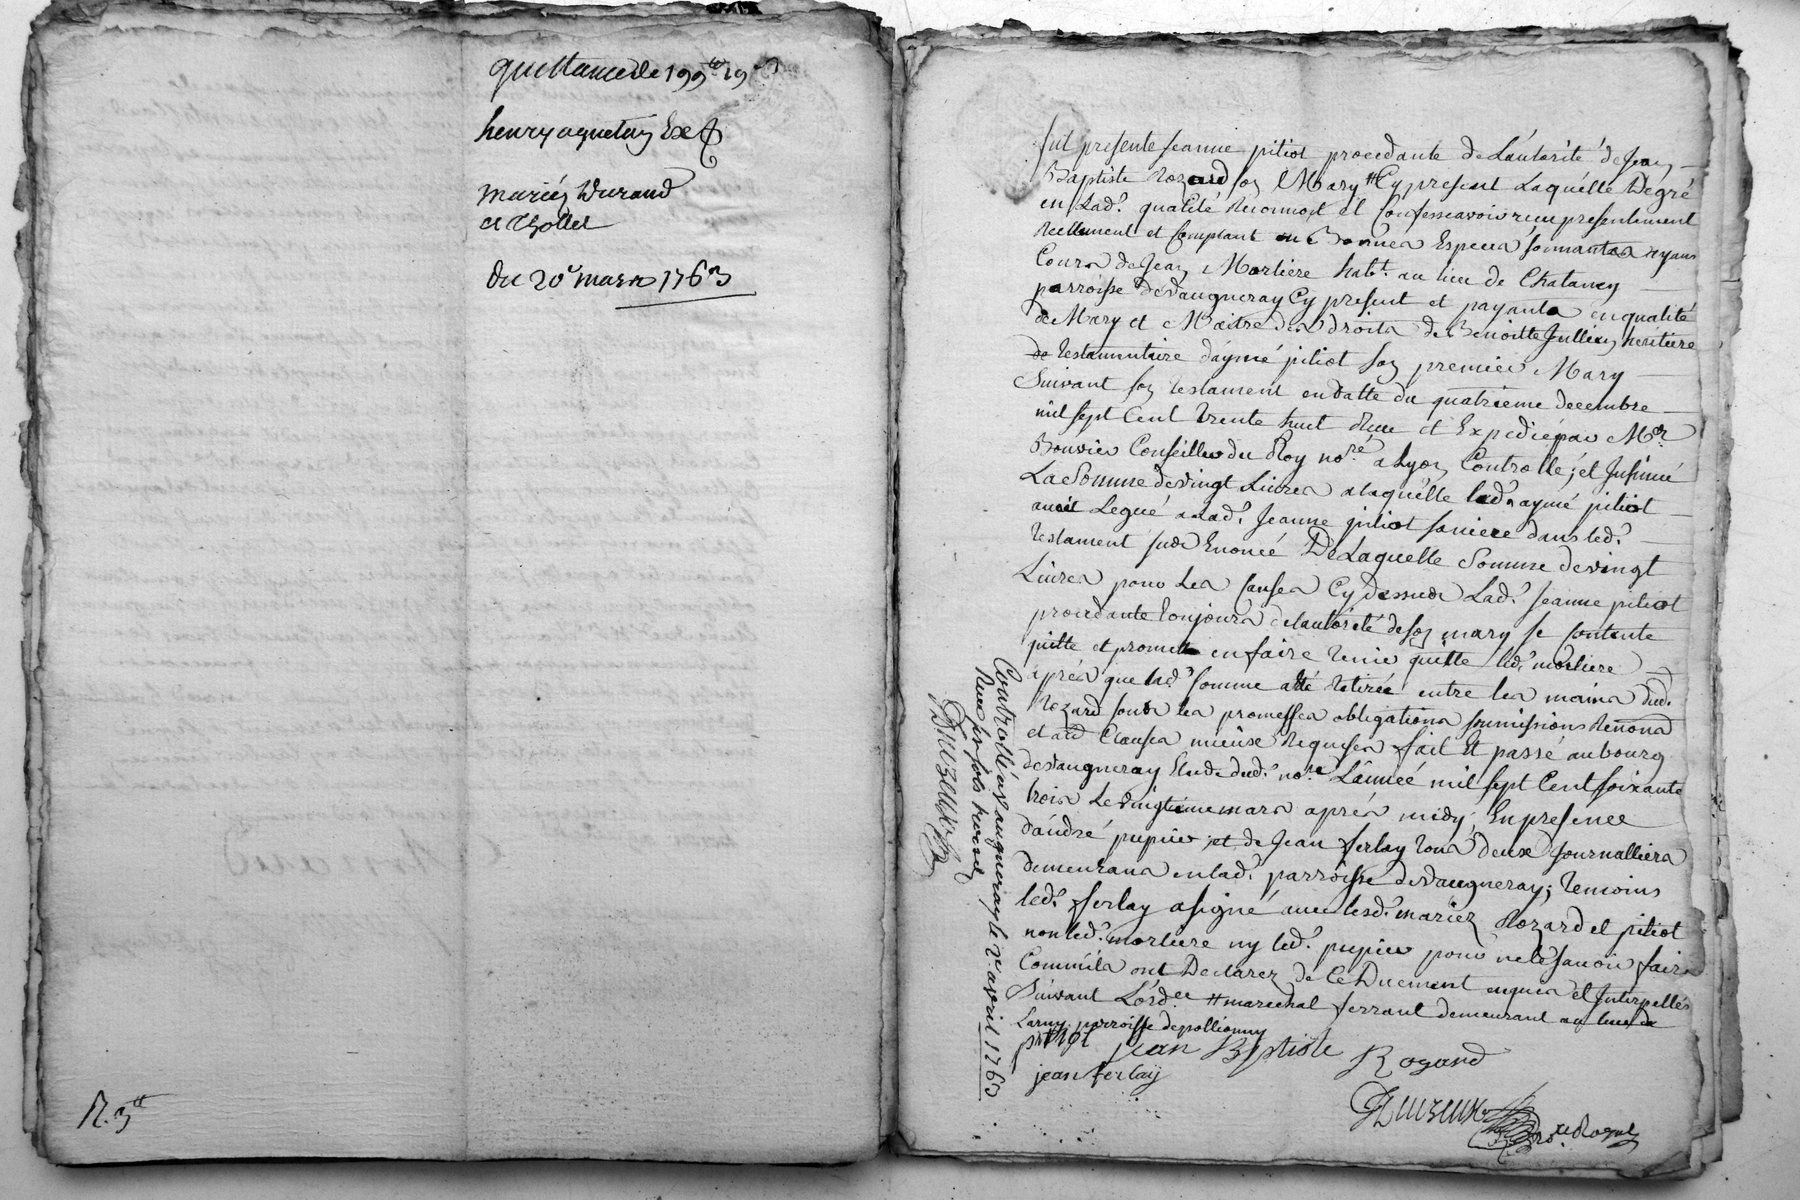 quittance de 199ᵗᵗ 19ˢ
henry aquetuy Ex
Mariez Durand
et Thollet
du 20ᵉ mars 1763
R. 3ᵗᵗ
fut presente Jeanne pitiot procedante de L'autorité de Jean
Baptiste Rozard son Mary # Cy present Laquelle De gré
en Lad.ᵉ qualité Reconnoit et Confesse avoir reçu presentement
Reellement et Comptant en Bonnes Especes sonnantes ayans
Cours de Jean Morliere habᵗ. au lieu de Chatanay
parroisse de Vaugneray Cy present et payants en qualité
de Mary et Maitre des droits de Benoitte Jullien héritiere
testamentaire d'aymé pitiot son premier Mary
Suivant son testament en datte du quatrieme decembre
mil sept Cent trente huit Reçu et Expedié par Mᵉ
Bouvier Conseiller du Roy noʳᵉ a Lyon Controllé, et Insinué
La Somme de vingt Livres a laquelle led. aymé pitiot
avoit Legué a Lad.ᵉ Jeanne pitiot sa niece dans led.ᵗ
testament sus Enoncé De Laquelle Somme de vingt
Livres pour Les Causes Cy dessus Lad.ᵉ Jeanne pitiot
procedante toujours de l'autorité de son mary se Contente
quitte et promet en faire tenir quitte led.ᵗ morliere
aprés que lad.ᵉ somme a été Retirée entre les mains dud.
Rozard sous les promesses obligations soumissions Renons
et au Clauses mieux Requises fait Et passé au bourg
de Vaugneray Etude dud.ᵗ noʳᵉ L'année mil sept Cent soixante
trois Le vingtieme mars aprés midy, En presence
d'andré pupier et de Jean ferlay tous deux Journalliers
demeurans en lad.ᵉ parroisse de Vaugneray; temoins
led.ᵗ ferlay a signé avec lesd.ᵗ mariez Rozard et pitiot
non led.ᵗ morliere ny led.ᵗ pupier pour ne le savoir faire
Comme ils ont Declarez de Ce Duement enquis et Interpellés
Suivant L'ordᶜᵉ # marechal ferrant demeurant au lieu de
Larny parroisse de pollionnay
pitiot jean Baptiste Rozard
jean ferlay
Controllé a Vaugneray le 2ᵉ avril 1763
Reçu six sols